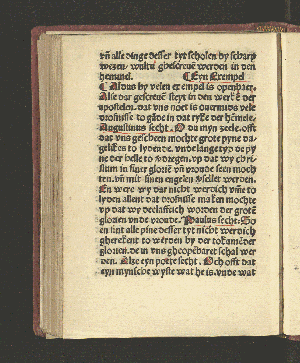 vñ alle dinge desser tyt scholen by scharp
wezen/ wultu ghescreuē werden in den
hemmel. ¶ Eyn Exempel
¶ Aldus by velen exempel is openbaer.
Alse dar gescreuē steyt in den werkē der
apostelen. dat vns noet is ouermids vele
drofnisse to gāde in dat ryke der hēmele.
Augustinus secht. O du myn zeele. offt
dat vns gescheen mochte grote pyne da-
gelikes to lydende. vnde langetyd de py
ne der helle to vordregen. vp dat wy chri
stum in siner glorien vñ vroude seen moch
ten. vñ mit sinen engelen ghesellet werden.
En were wy dar nicht werdich vmme to
lyden allent dat drofnisse maket mochte
vp dat wy deelaftich worden der grotē
glorien vnde vroude. Paulus secht: So
en sint alle pine desser tyt nicht werdich
gherekent to werden by der tokamēder
glorien. de in vns gheopēbaret schal wer
den. Alze eyn poete secht. Och offt dat
eyn mynsche wyste wat he is. vnde wat